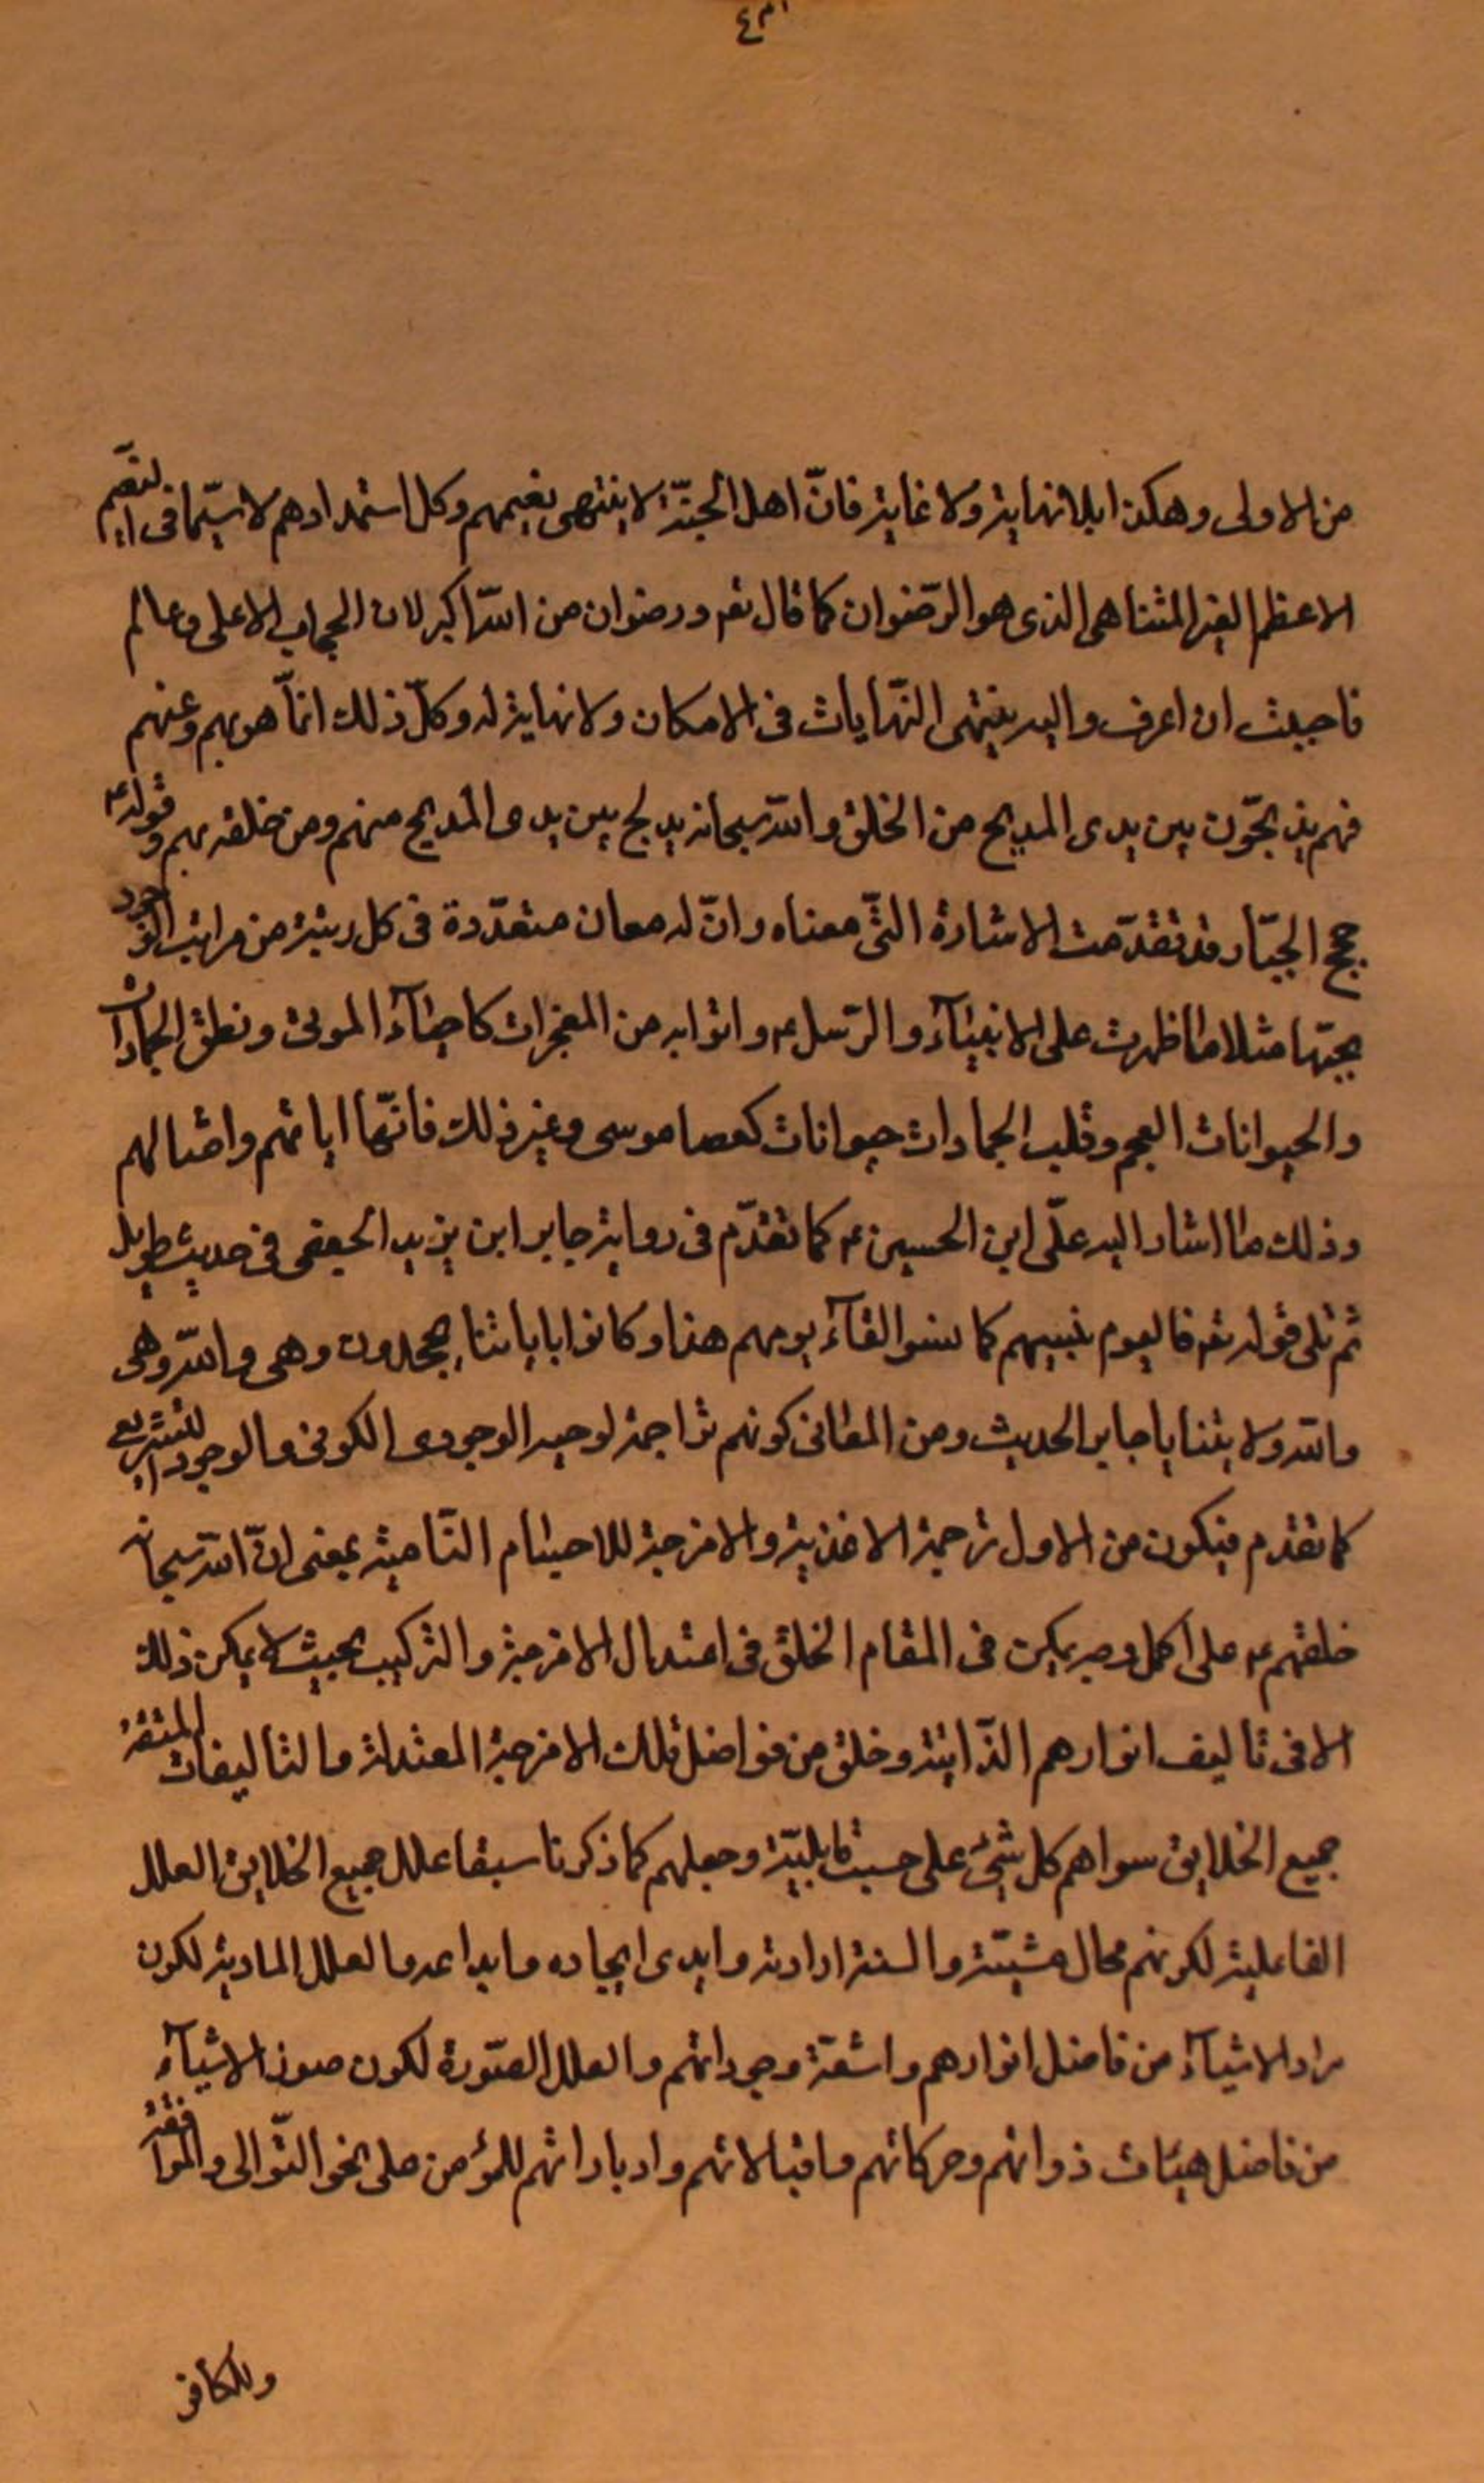 من الاولى وهكذا بلا نهاية ولا غاية فانّ اهل الجنّة لا ينتهى نعيمهم وكل استمدادهم لا سيّما فى النعيم
الاعظم الغير المتناهى الذى هو الرّضوان كما قال تعه ورضوان من الله اكبر لان الحجاب الاعلى وعالم
فاحببت ان اعرف واليه ينتهى النّهايات فى الامكان ولا نهاية له وكلّ ذلك انمّا هو بهم وعنهم
فهم يدلجون بين يدى المدلج من الخلق والله سبحانه يدلج بين يدى المدلج منهم ومن خلقه بهم وقوله ع
حجج الجبّار قد تقدّمت الاشارة الى معناه وانّ له معان متعدّدة فى كل رتبة من مراتب الوجود
بحبّها مثلا ما ظهرت على الانبيآء والرّسل ع واتوا به من المعجزات كاحيآء الموتى ونطق الجمادات
والحيوانات العجم وقلب الجمادات حيوانات كعصا موسى وغير ذلك فانّها اياتهم وامثالهم
وذلك ما اشار اليه علّى ابن الحسين ع كما تقدّم فى رواية جابر ابن يزيد الجعفى فى حديث طويل
ثم تلى قوله تعه فاليوم ننسيهم كما نسوا لقآء يومهم هذا وكانوا باياتنا يجحدون وهى والله وهى
والله ولايتنا يا جابر الحديث ومن المعانى كونهم تراجمة لوحيه الوجودى الكونى والوجود التشريعى
كما تقدم فيكون من الاول ترجمة الاغذية والامزجة للاجسام النّامية بمعنى انّ الله سبحانه
خلقهم ع على اكمل وجه يمكن فى المقام الخلق فى اعتدال الامزجة والتركيب بحيث لا يمكن ذلك
الا فى تاليف انوارهم الذّاتية وخلق من فواضل تلك الامزجة المعتدلة والتاليفات المتقنة
جميع الخلايق سواهم كل شئ على حسب قابليّته وجعلهم كما ذكرنا سبقا علل جميع الخلايق العلل
الفاعلية لكونهم محال مشيّته والسنة ارادته وايدى ايجاده وابداعه والعلل المادية لكون
مواد الاشيآء من فاضل انوارهم واشعّة وجوداتهم والعلل الصّورة لكون صور الاشيآء
من فاضل هيئات ذواتهم وحركاتهم واقبالاتهم وادباراتهم للمؤمن على نحو التّوالى والموافقة
وللكافر